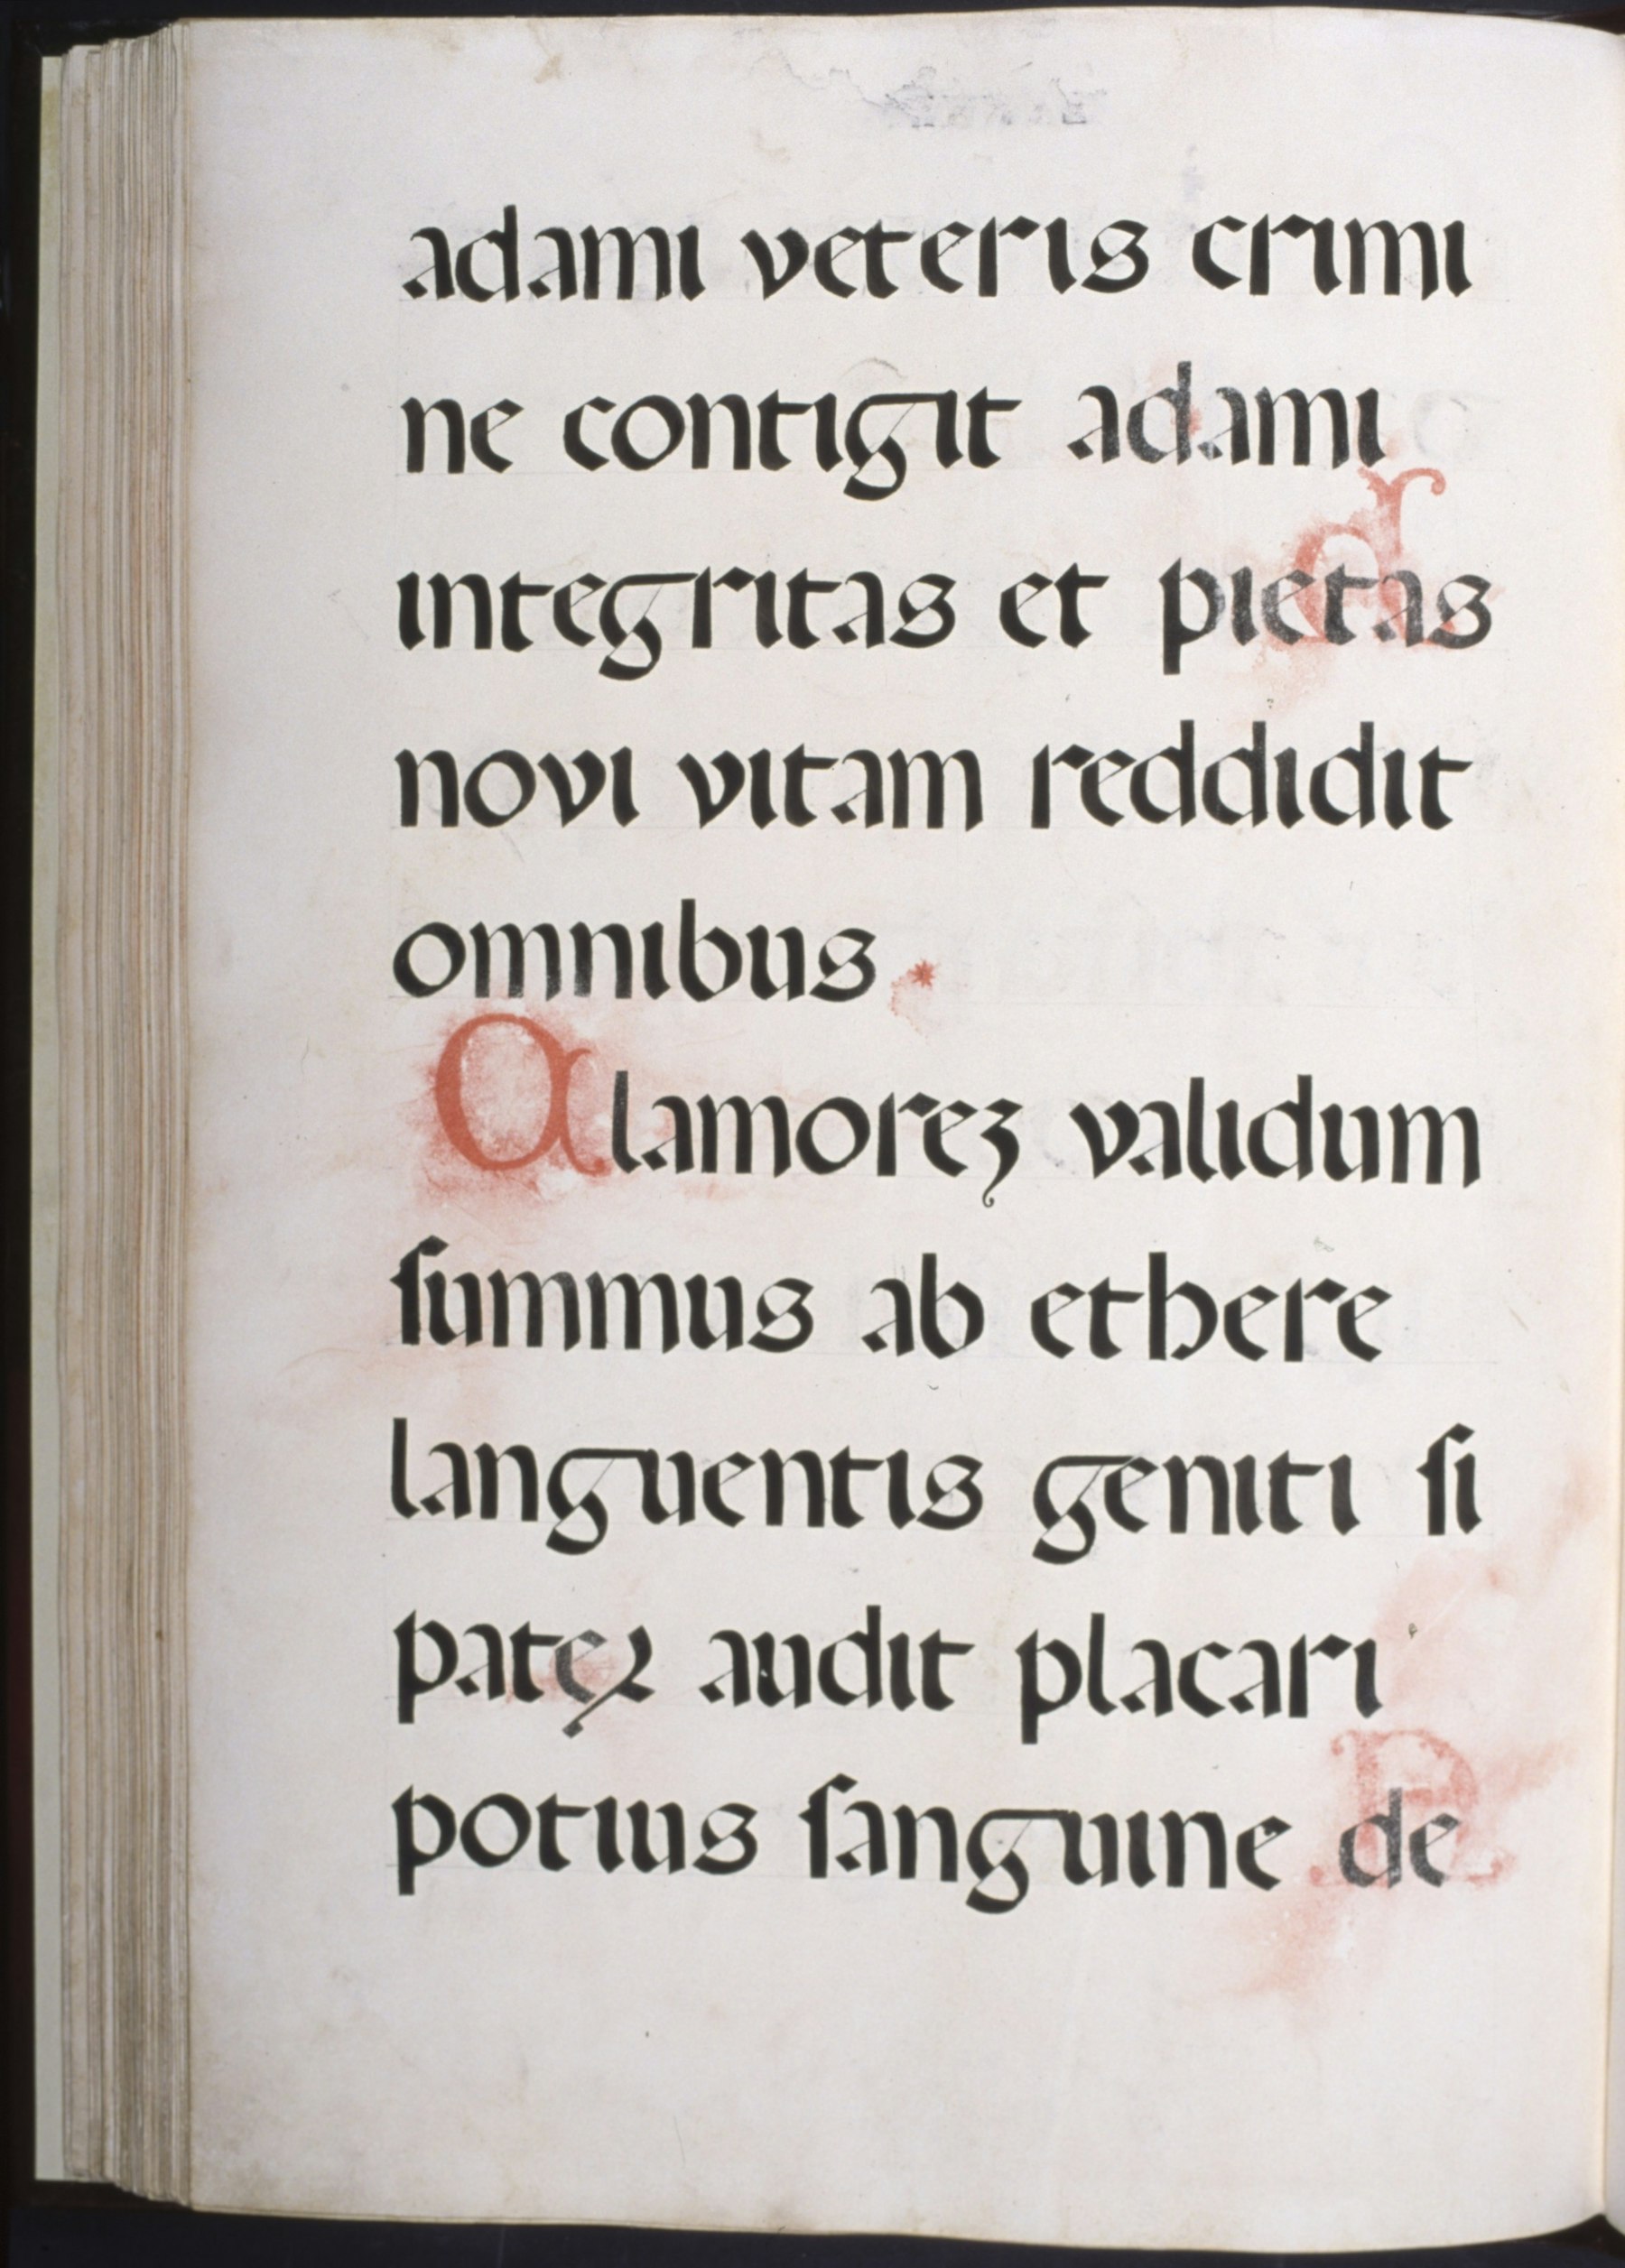 adami veteris crimi
ne contigit adami
integritas et pietas
novi vitam reddidit
omnibus *
Clamorez validum
ſummus ab ethere
languentis geniti ſi
pateꝛ audit placari
potius ſanguine de